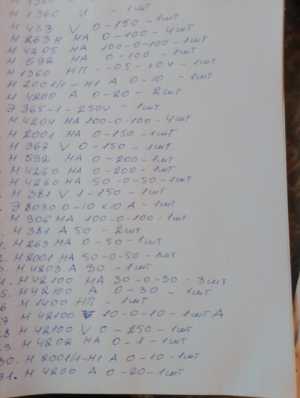 М 1360 И - 1шт
М 433 V 0-150-1шт
М 263М МА 0-100-4шт
М 4205 МА 100-0-100-1шт
М 592 МА 0-100-1шт
М 1360 НП -05-10V-1шт
М 2001/1-М1 А 0-10-1шт
М 4200 А 0-20-2шт
Э 365-1-250V-1шт
М 4204 МА 100-0-100-4шт
М 2001 МА 0-150-1шт
М 367 V 0-150-1шт
М 592 МА 0-200-1шт
М 4260 МА 0-200-1шт
М 4260 МА 50-0-50-1шт
М 381 V 1-150-1шт
Э 8030 0-10 А-1шт
М 906 МА 100-0-100-1шт
М 381 А 50-2шт
М 263 МА 0-50-1шт
2. М 2001 МА 50-0-50-1шт
3. М 4203 А 30-1шт
4. М 42100 МА 30-0-30-3шт
5. М 42100 А 0-30-1шт
6 М 1400 НП-1шт
7 М 42100 10-0-10-1шт А
28 М 42100 V 0-250-1шт
29 М 4202 МА 0-1-1шт
30. М 2001/1-М1 А 0-10-1шт
31. М 4200 А 0-20-1шт